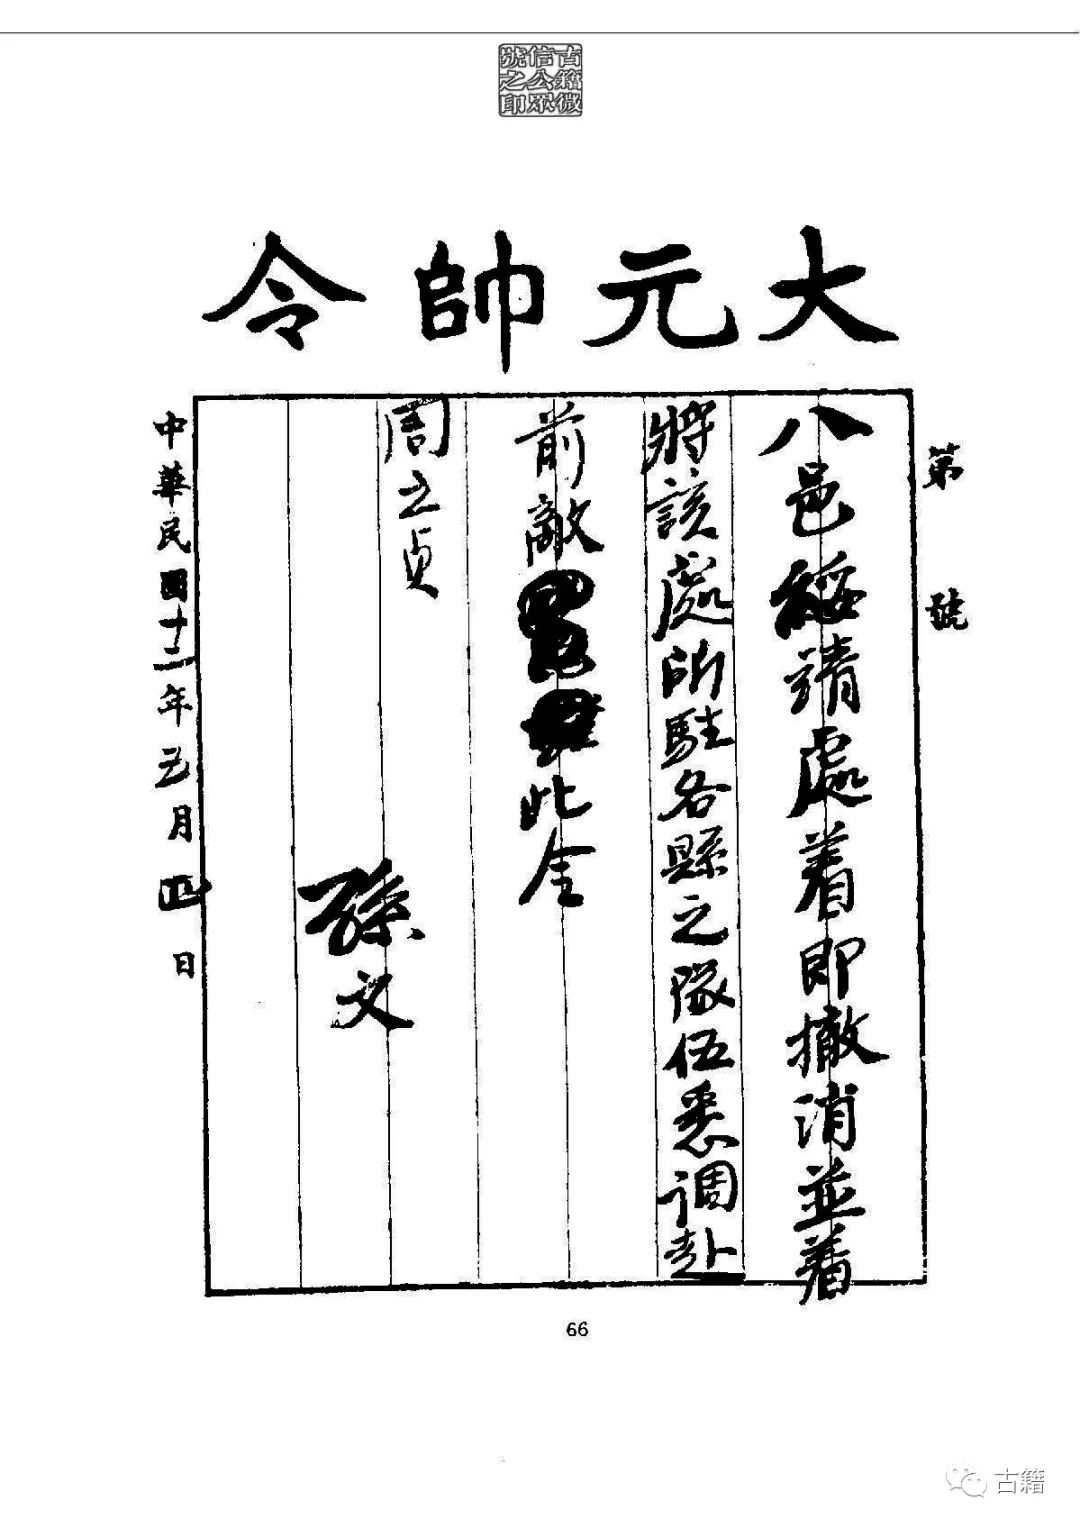 古籍微
信公眾
號之印
大元帥令
第 號
八邑綏靖處着即撤消並着
將該處所駐各縣之隊伍悉調赴
前敵此令
周之貞
孫文
中華民國十二年五月四日
66
古籍